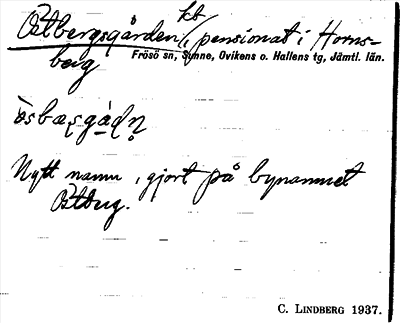 Östbergsgården, kb, pensionat i Horns-
berg
Frösö sn, Sunne, Ovikens o. Hallens tg, Jämtl. län.
Nytt namn, gjort på bynamnet
Östberg.
C. LINDBERG 1937.